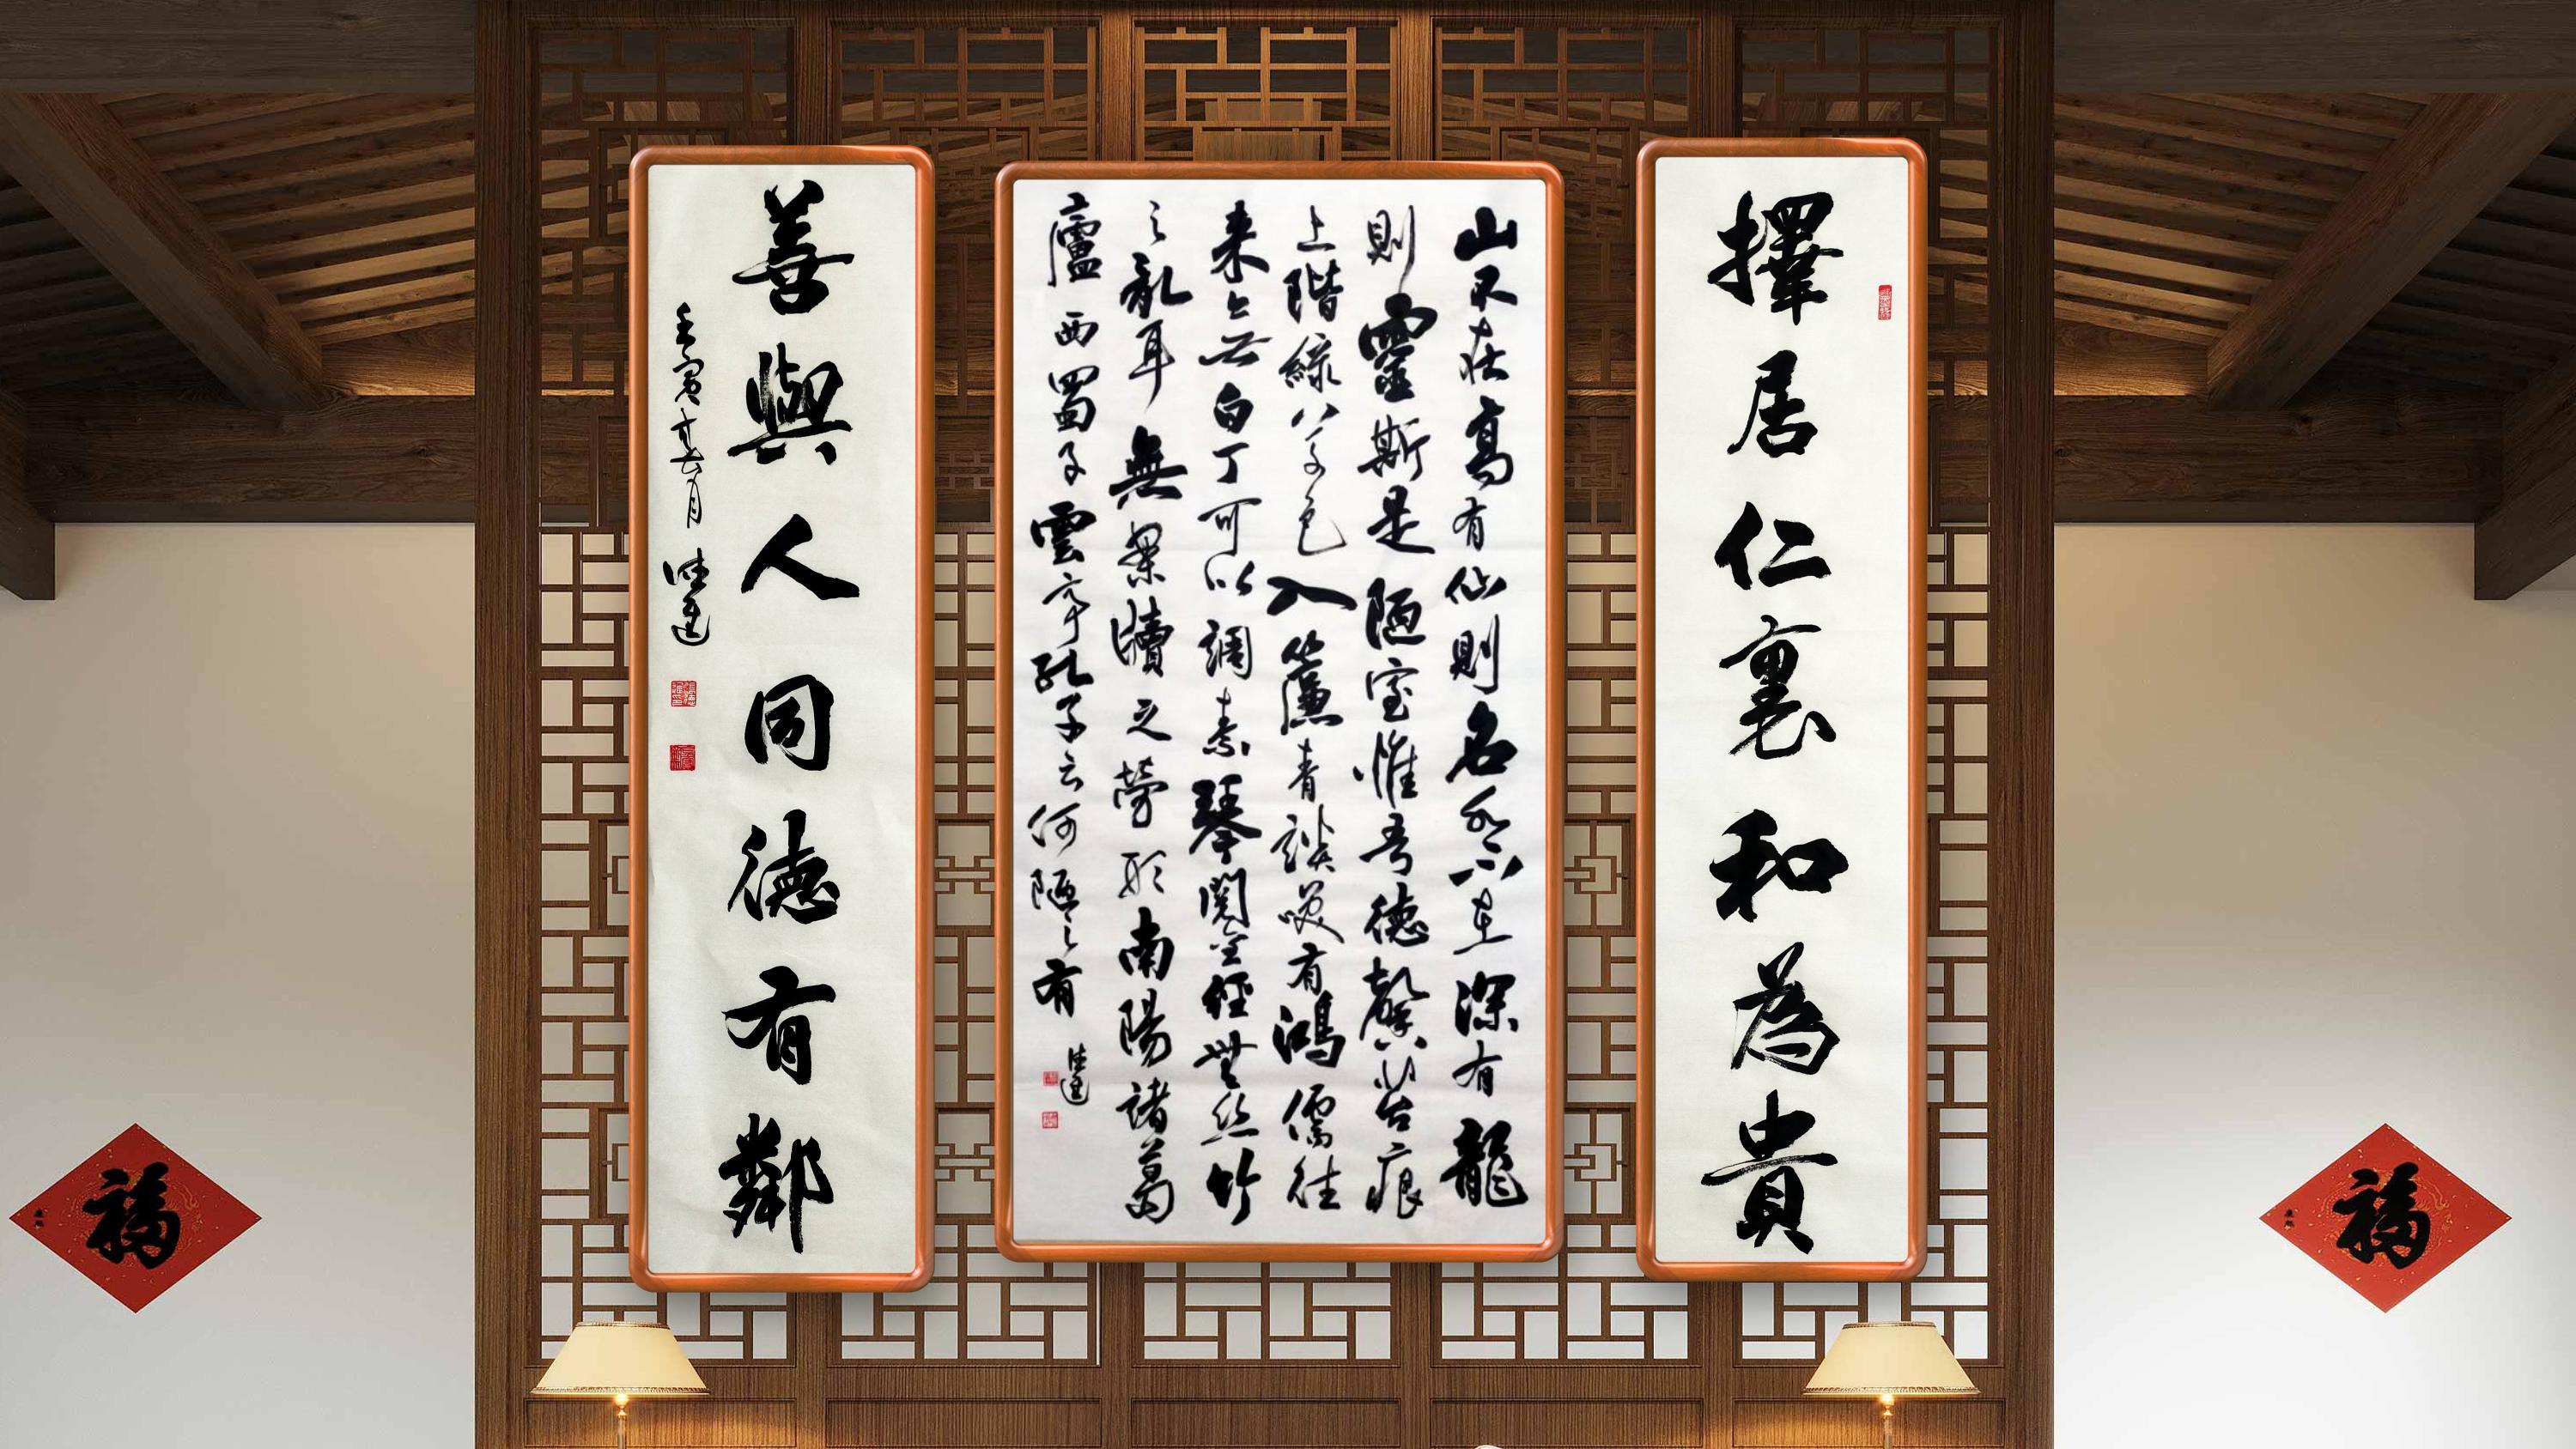 擇居仁裏和為貴
山不在高有仙則名水不在深有龍
則靈斯是陋室惟吾德馨苔痕
上階綠草色入簾青談笑有鴻儒往
来无白丁可以調素琴閱金經無絲竹
之亂耳無案牘之勞形南陽諸葛
廬西蜀子雲亭孔子云何陋之有
善與人同德有鄰
壬寅
福
福